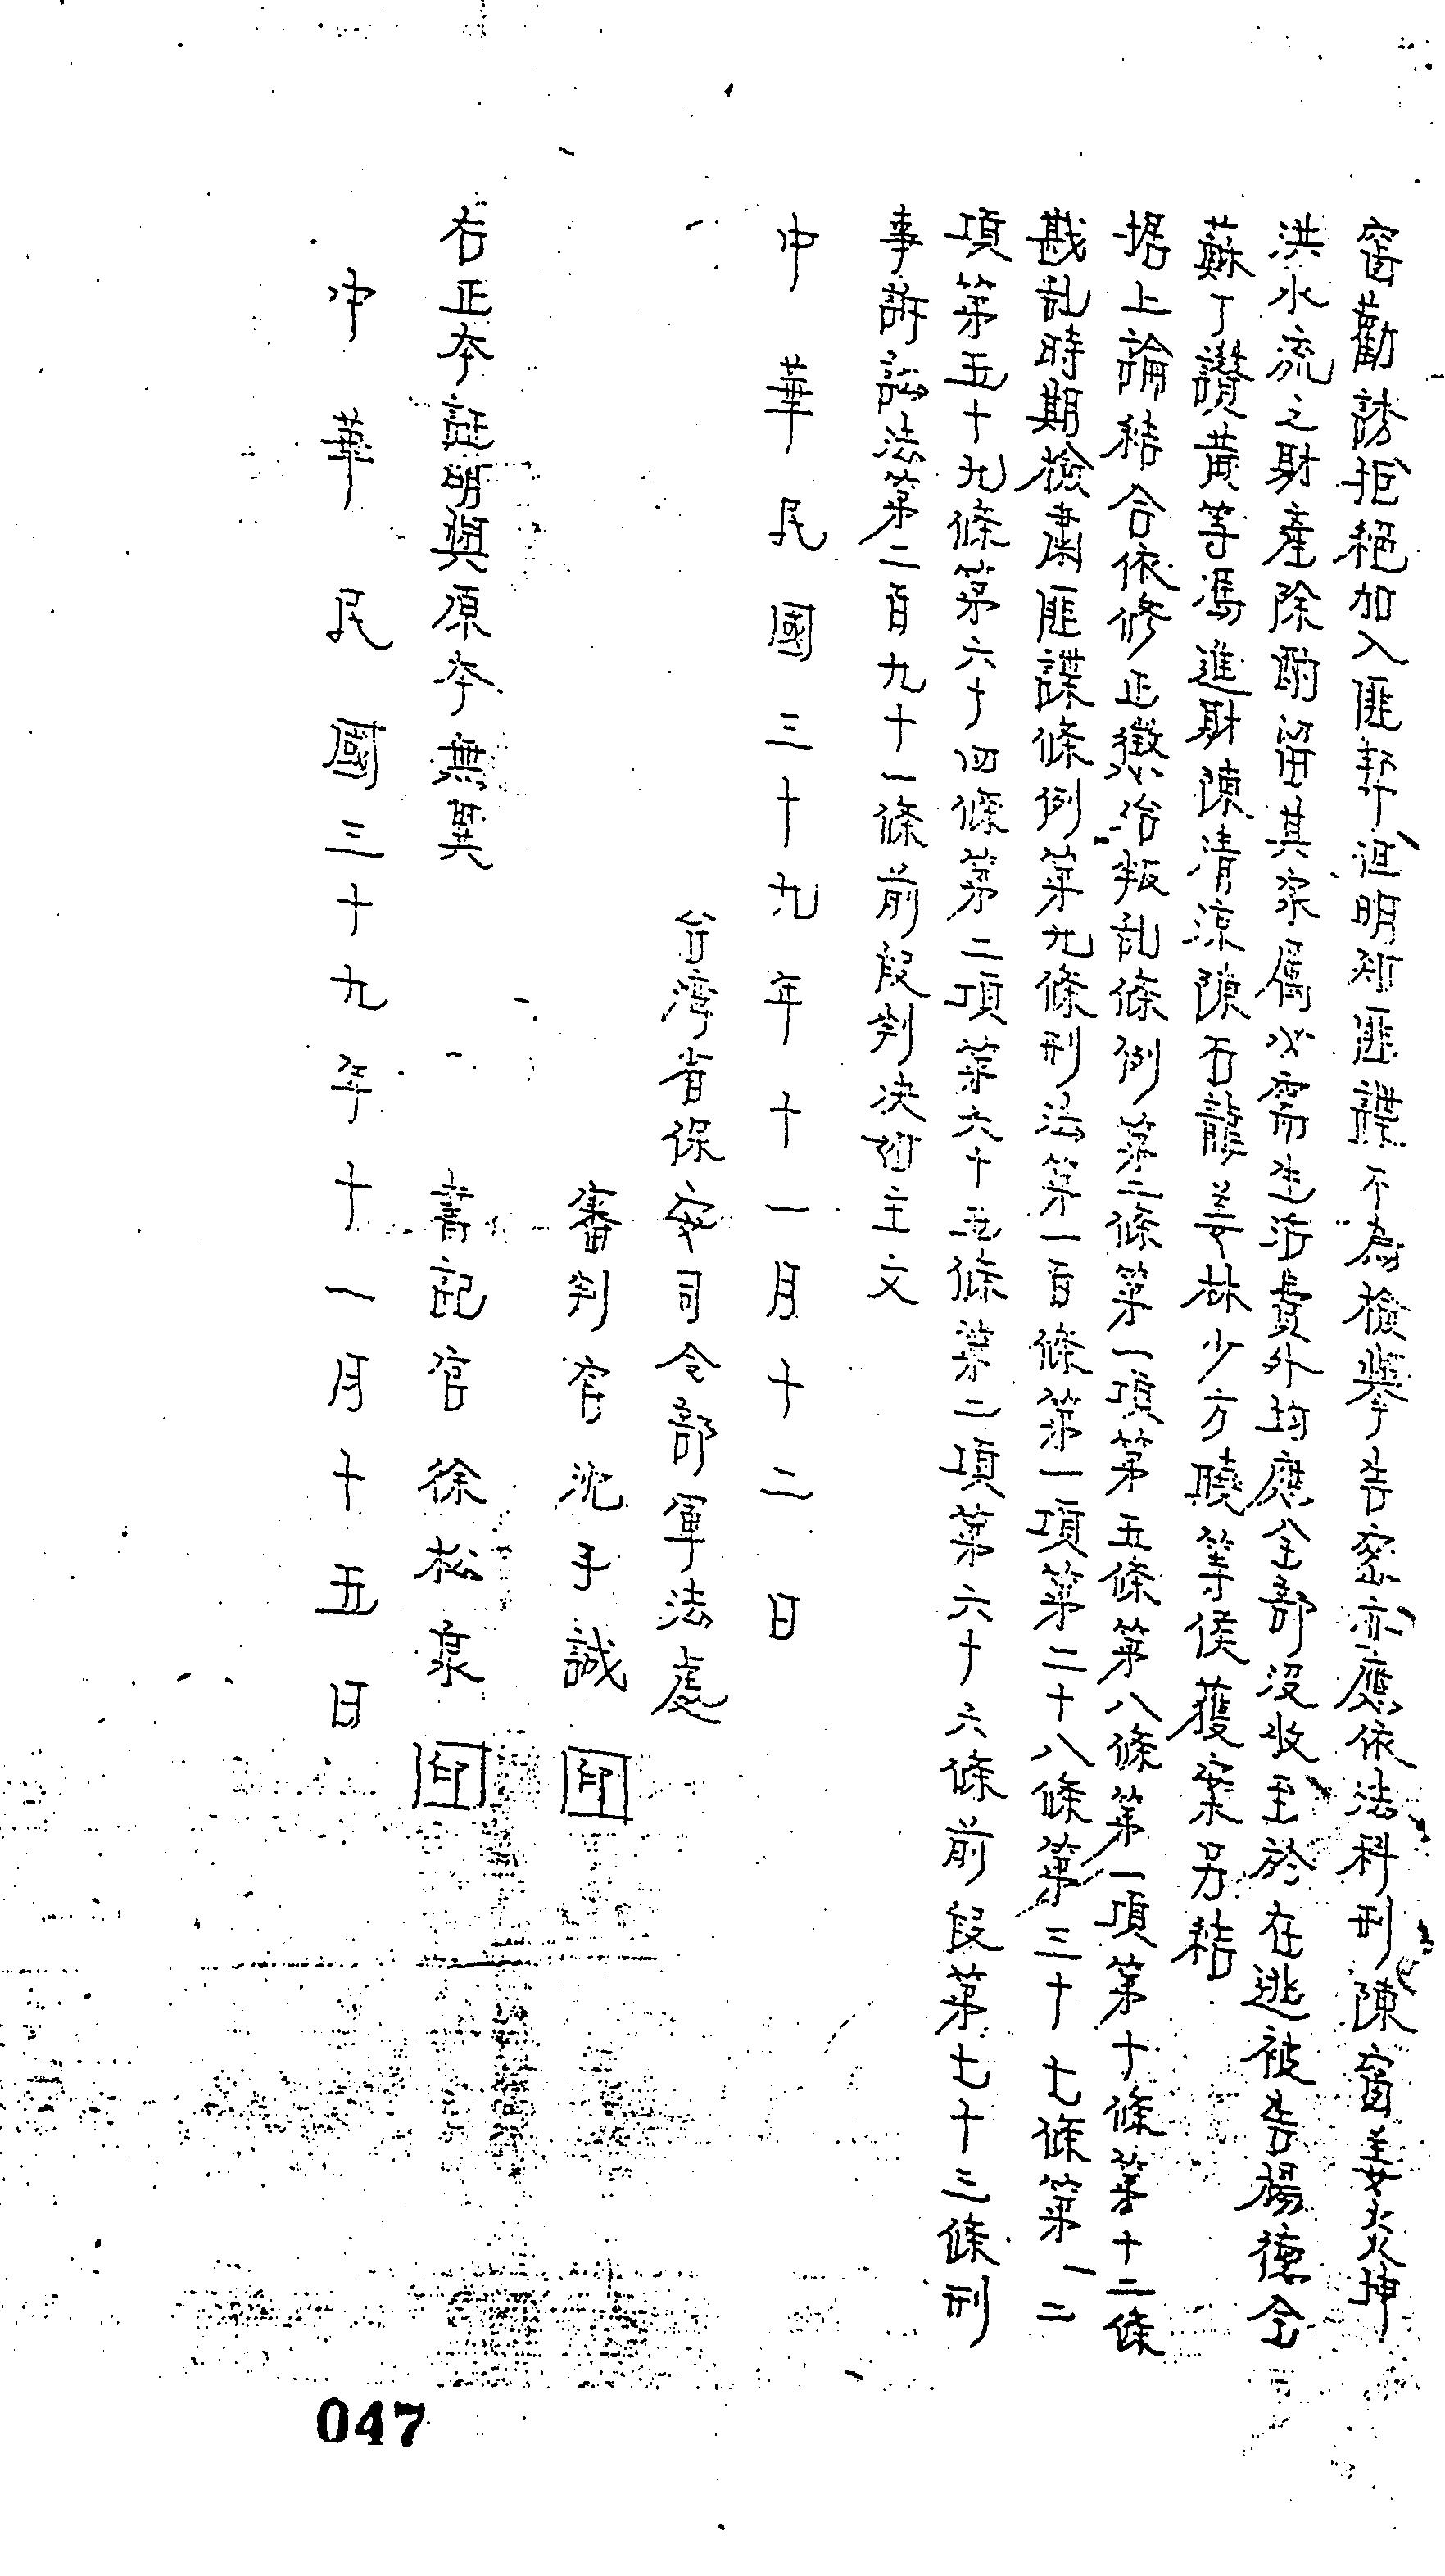 窗勸誘拒絕加入匪幫但明知匪諜不為檢舉告密亦應依法科刑陳窗姜炎坤
洪水流之財產除酌留其家屬必需生活費外均應全部沒收至於在逃被告楊德金
蘇丁讚黃等馮進財陳清涼陳石龍姜林少方曉等俟獲案另結
据上論結合依修正懲治叛乱條例第二條第一項第五條第八條第一項第十條第十二條
戡乱時期檢肅匪諜條例第九條刑法第一百條第一項第二十八條第三十七條第一二
項第五十九條第六十四條第二項第六十五條第二項第六十六條前段第七十三條刑
事訴訟法第二百九十一條前段判決如主文
中華民國三十九年十一月十二日
台灣省保安司令部軍法處
審判官沈手誠印
右正本証明與原本無異
書記官徐松泉印
中華民國三十九年十一月十五日
047